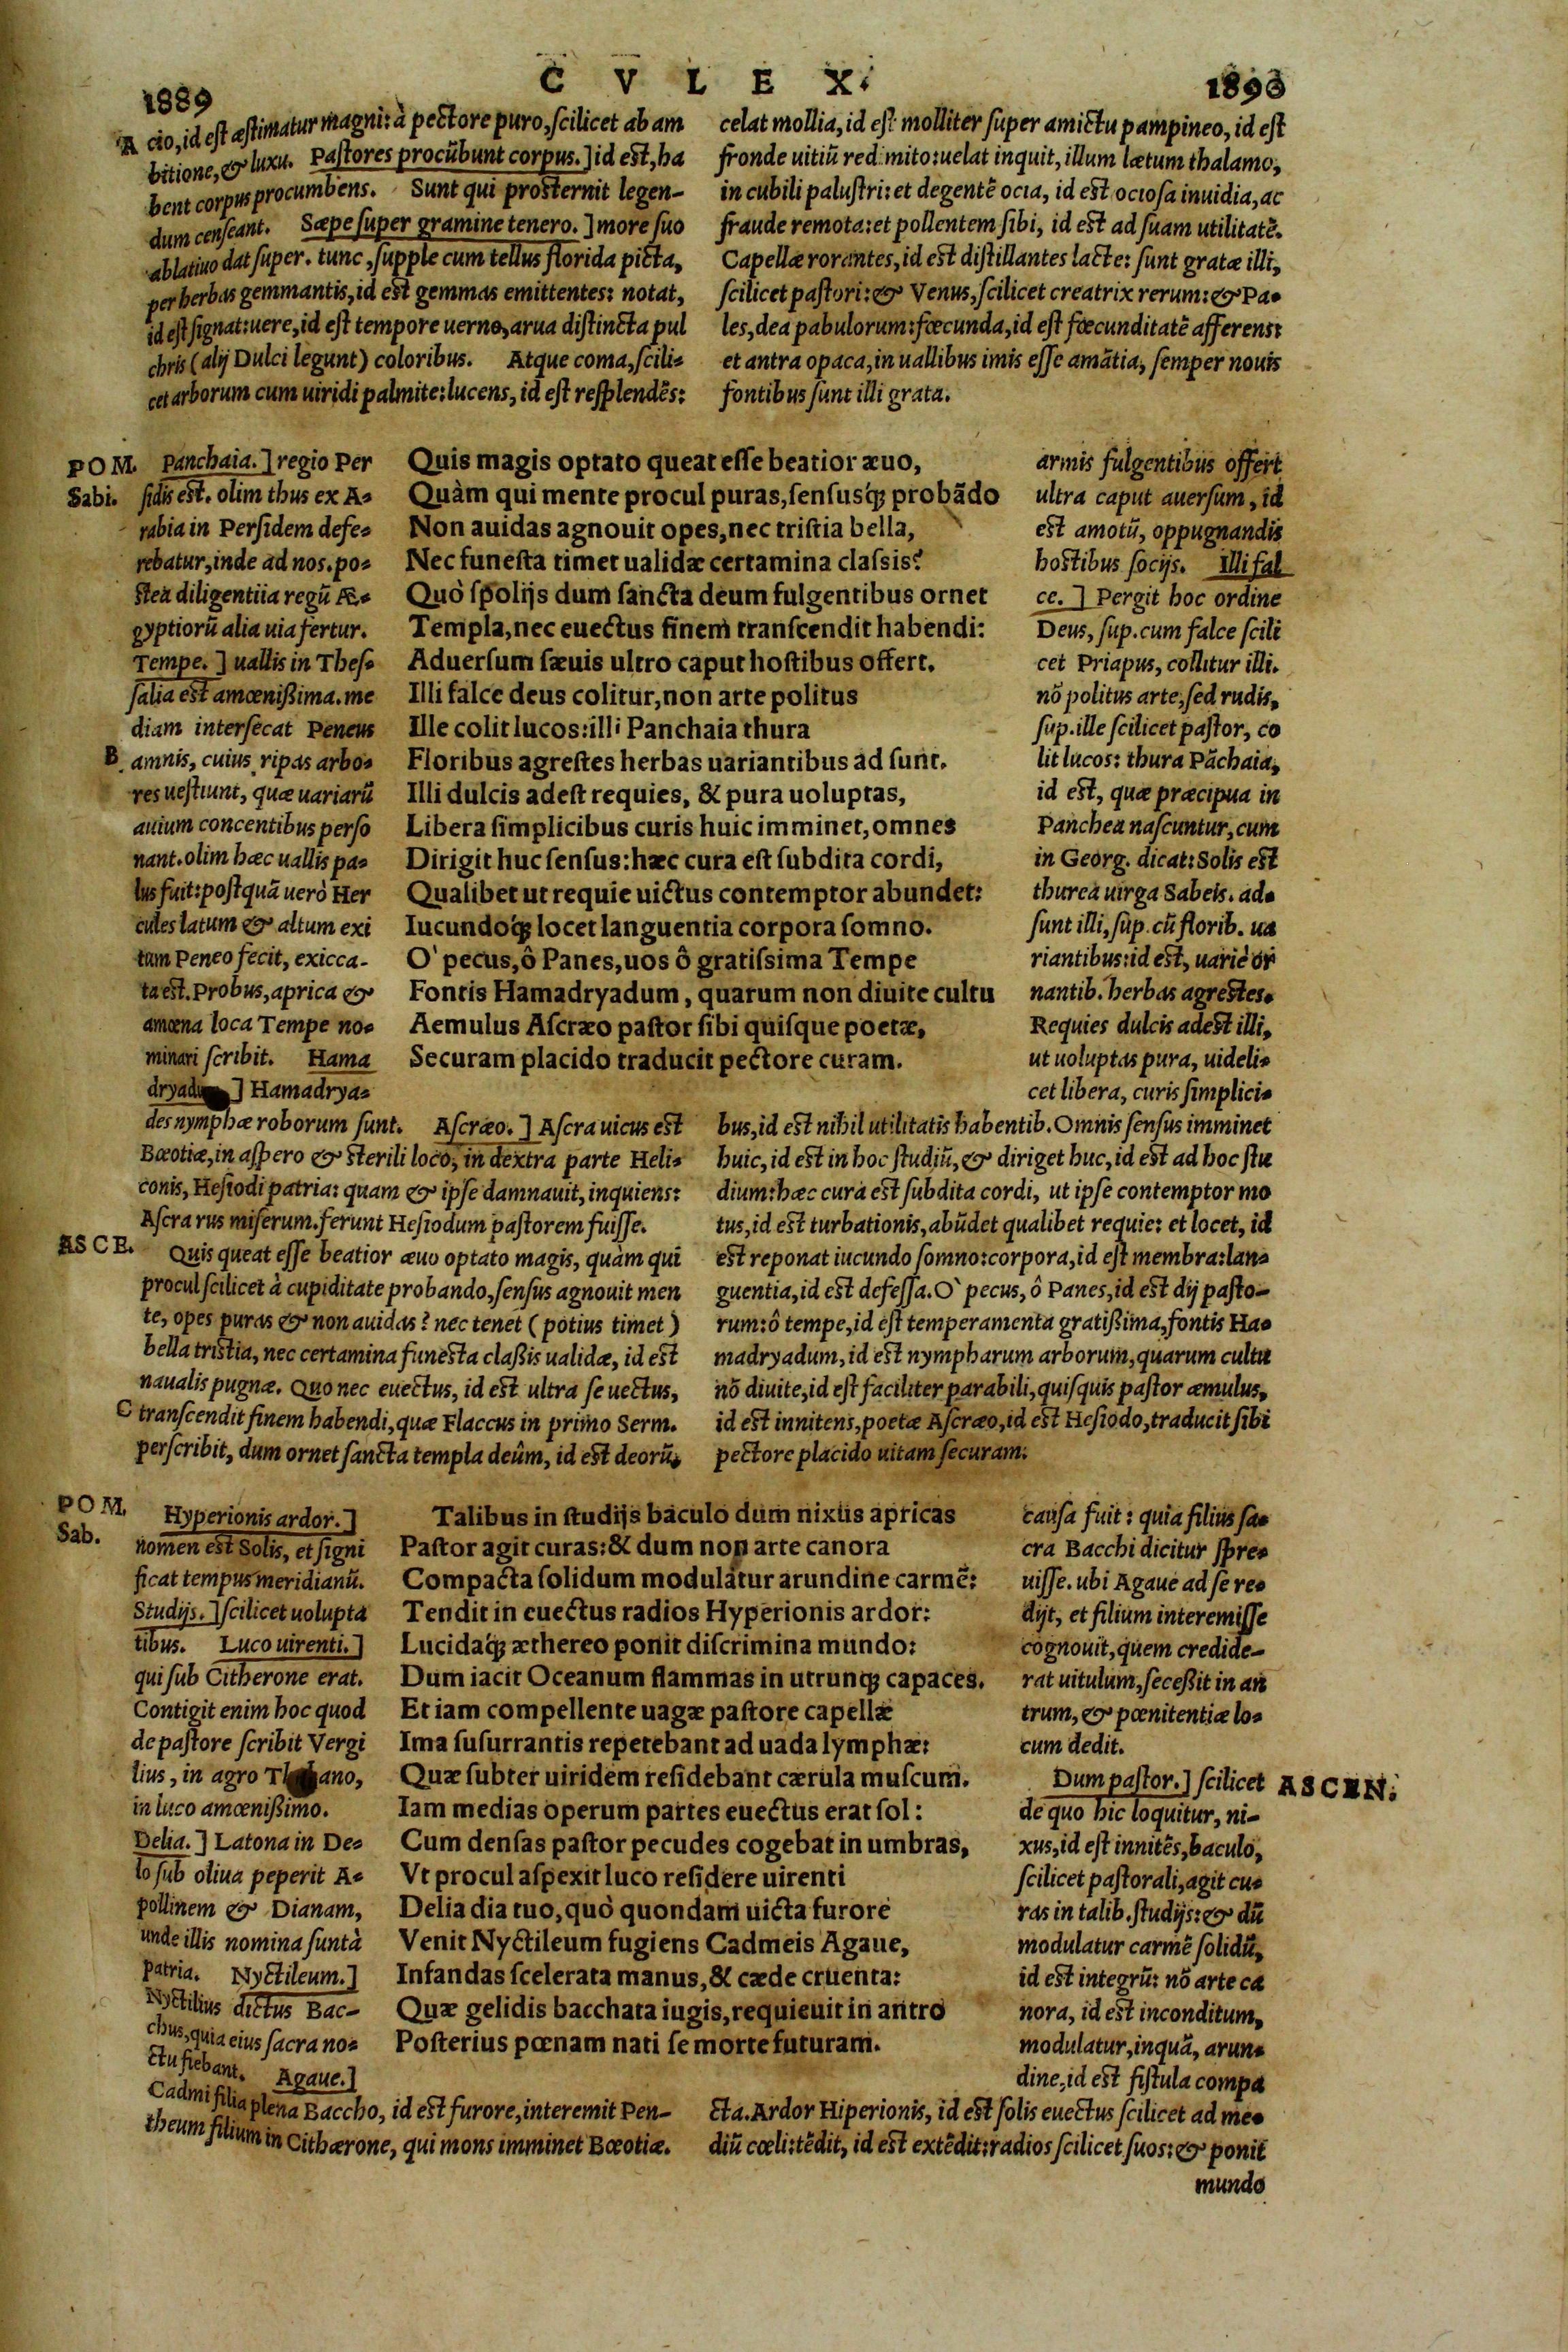 1889
C V L E X.
1890
A cio, id est æstimatur magni: à pectore puro, scilicet ab am
bitione, & luxu. Pastores procũbunt corpus.] id est, ha
bent corpus procumbens. Sunt qui prosternit legen-
dum censeant. Sæpe super gramine tenero.] more suo
ablatiuo dat super. tunc, supple cum tellus florida picta,
per herbas gemmantis, id est gemmas emittentes: notat,
id est signat: uere, id est tempore uerno, arua distincta pul
chris (alij Dulci legunt) coloribus. Atque coma, scili-
cet arborum cum uiridi palmite: lucens, id est resplendẽs:
celat mollia, id est molliter super amictu pampineo, id est
fronde uitiũ redimito: uelat inquit, illum lætum thalamo,
in cubili palustri: et degentẽ ocia, id est ociosa inuidia, ac
fraude remota: et pollentem sibi, id est ad suam utilitatẽ.
Capellæ rorantes, id est distillantes lacte: sunt gratæ illi,
scilicet pastori: & Venus, scilicet creatrix rerum: & Pa-
les, dea pabulorum: fœcunda, id est fœcunditatẽ afferens:
et antra opaca, in uallibus imis esse amãtia, semper nouis
fontibus sunt illi grata.
POM.
Sabi.
Panchaia.] regio Per
sidis est. olim thus ex A-
rabia in Persidem defe-
rebatur, inde ad nos. po-
stea diligentiia regũ Æ-
gyptiorũ alia uia fertur.
Tempe.] uallis in Thes-
salia est amœnißima. me
diam intersecat Peneus
B amnis, cuius ripas arbo-
res uestiunt, quæ uariarũ
auium concentibus perso
nant. olim hæc uallis pa-
lus fuit: postquã uerò Her
cules latum & altum exi
tum Peneo fecit, exicca-
ta est. Probus, aprica &
amœna loca Tempe no-
minari scribit. Hama
] Hamadrya-
des nymphæ roborum sunt. Ascræo.] Ascra uicus est
Bœotiæ, in aspero & sterili loco, in dextra parte Heli-
conis, Hesiodi patria: quam & ipse damnauit, inquiens:
Ascra rus miserum. ferunt Hesiodum pastorem fuisse.
ASCE.
Quis queat esse beatior æuo optato magis, quàm qui
procul scilicet à cupiditate probando, sensus agnouit men
te, opes puras & non auidas? nec tenet (potius timet)
bella tristia, nec certamina funesta claßis ualidæ, id est
naualis pugnæ. Quo nec euectus, id est ultra se uectus,
C transcendit finem habendi, quæ Flaccus in primo Serm.
perscribit, dum ornet sancta templa deûm, id est deorũ,
Quis magis optato queat esse beatior æuo,
Quàm qui mente procul puras, sensusq́; probãdo
Non auidas agnouit opes, nec tristia bella,
Nec funesta timet ualidæ certamina classis?
Quò spolijs dum sancta deum fulgentibus ornet
Templa, nec euectus finem transcendit habendi:
Aduersum sæuis ultro caput hostibus offert.
Illi falce deus colitur, non arte politus
Ille colit lucos: illi Panchaia thura
Floribus agrestes herbas uariantibus ad sunt.
Illi dulcis adest requies, & pura uoluptas,
Libera simplicibus curis huic imminet, omnes
Dirigit huc sensus: hæc cura est subdita cordi,
Qualibet ut requie uictus contemptor abundet:
Iucundoq́; locet languentia corpora somno.
O' pecus, ô Panes, uos ô gratissima Tempe
Fontis Hamadryadum, quarum non diuite cultu
Aemulus Ascræo pastor sibi quisque poetæ,
Securam placido traducit pectore curam.
armis fulgentibus offert
ultra caput auersum, id
est amotũ, oppugnandis
hostibus socijs. Illi fal
ce.] Pergit hoc ordine
Deus, sup. cum falce scili
cet Priapus, collitur illi.
nõ politus arte, sed rudis,
sup. ille scilicet pastor, co
lit lucos: thura Pãchaia,
id est, quæ præcipua in
Panchea nascuntur, cum
in Georg. dicat: Solis est
thurea uirga Sabeis. ad-
sunt illi, sup. cũ florib. ua
riantibus: id est, uariè or
nantib. herbas agrestes.
Requies dulcis adest illi,
ut uoluptas pura, uideli-
cet libera, curis simplici-
bus, id est nihil utilitatis habentib. Omnis sensus imminet
huic, id est in hoc studiũ, & diriget huc, id est ad hoc stu
dium: hæc cura est subdita cordi, ut ipse contemptor mo
tus, id est turbationis, abũdet qualibet requie: et locet, id
est reponat iucundo somno: corpora, id est membra: lan-
guentia, id est defessa. O' pecus, ô Panes, id est dij pasto-
rum: ô tempe, id est temperamenta gratißima, fontis Ha-
madryadum, id est nympharum arborum, quarum cultu
nõ diuite, id est faciliter parabili, quisquis pastor æmulus,
id est innitens, poetæ Ascræo, id est Hesiodo, traducit sibi
pectore placido uitam securam.
POM.
Sab.
Hyperionis ardor.]
nomen est Solis, et signi
ficat tempus meridianũ.
Studijs.] scilicet uolupta
tibus. Luco uirenti.]
qui sub Citherone erat.
Contigit enim hoc quod
de pastore scribit Vergi
lius, in agro
in luco amœnißimo.
Delia.] Latona in De-
lo sub oliua peperit A-
pollinem & Dianam,
unde illis nomina sunt à
patria. Nyctileum.]
Nyctilius dictus Bac-
chus, quia eius sacra no-
ctu fiebant. Agaue.]
Cadmi filia plena Baccho, id est furore, interemit Pen-
theum filium in Cithærone, qui mons imminet Bœotiæ.
Talibus in studijs baculo dum nixus apricas
Pastor agit curas: & dum non arte canora
Compacta solidum modulatur arundine carmẽ:
Tendit in euectus radios Hyperionis ardor:
Lucidaq́; æthereo ponit discrimina mundo:
Dum iacit Oceanum flammas in utrunq; capaces.
Et iam compellente uagæ pastore capellæ
Ima susurrantis repetebant ad uada lymphæ:
Quæ subter uiridem residebant cærula muscum.
Iam medias operum partes euectus erat sol:
Cum densas pastor pecudes cogebat in umbras,
Vt procul aspexit luco residere uirenti
Delia dia tuo, quò quondam uicta furore
Venit Nyctileum fugiens Cadmeis Agaue,
Infandas scelerata manus, & cæde cruenta:
Quæ gelidis bacchata iugis, requieuit in antro
Posterius pœnam nati se morte futuram.
causa fuit: quia filius sa-
cra Bacchi dicitur spre-
uisse. ubi Agaue ad se re-
dijt, et filium interemisse
cognouit, quem credide-
rat uitulum, seceßit in an
trum, & pœnitentiæ lo-
cum dedit.
Dum pastor.] scilicet
ASCEN.
de quo hic loquitur, ni-
xus, id est innitẽs, baculo,
scilicet pastorali, agit cu-
ras in talib. studijs: & dũ
modulatur carmẽ solidũ,
id est integrũ: nõ arte ca
nora, id est inconditum,
modulatur, inquã, arun-
dine, id est fistula compa
cta. Ardor Hiperionis, id est solis euectus scilicet ad me-
diũ cœli: tẽdit, id est extẽdit: radios scilicet suos: & ponit
mundo